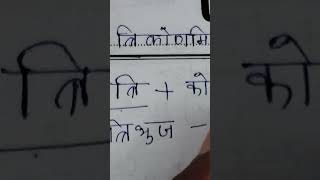 त्रिकोणमि
त्रि + को
त्रिभुज -